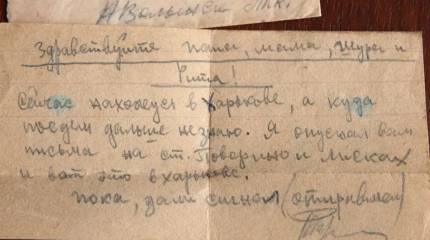 Здравствуйте папа, мама, Шура и
Сейчас нахожусь в Харькове, а куда
поедем дальше незнаю. Я опускал вам
письма на ст. Поворино и Лисках
и вот это в Харькове.
Пока, дали сигнал (отправляем